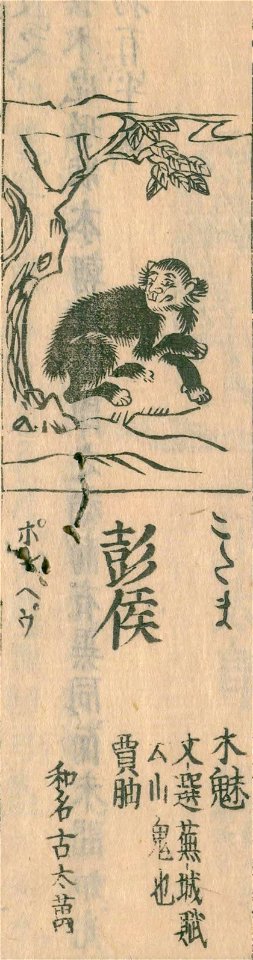 こたま
彭侯
ヘウ
木魅
文選蕪城賦
云山鬼也
賈
和名古太萬